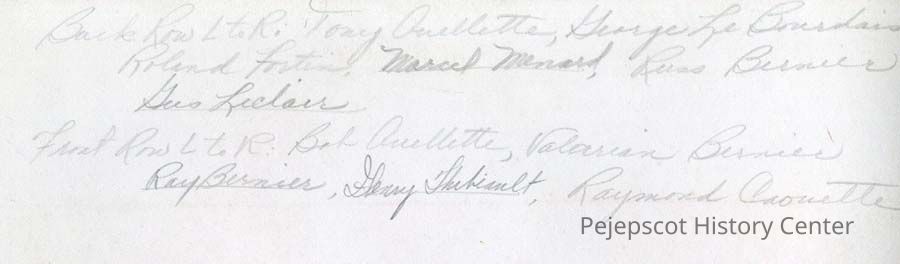 Back Row L to R: Tony Ouellette, George Le Bourdais
Roland Fortin, Marcel Menard, Russ Bernier
Gus Leclair
Front Row L to R: Bob Ouellette, Valarian Bernier
Ray Bernier, Henry Thibiault, Raymond Caouette
Pejepscot History Center